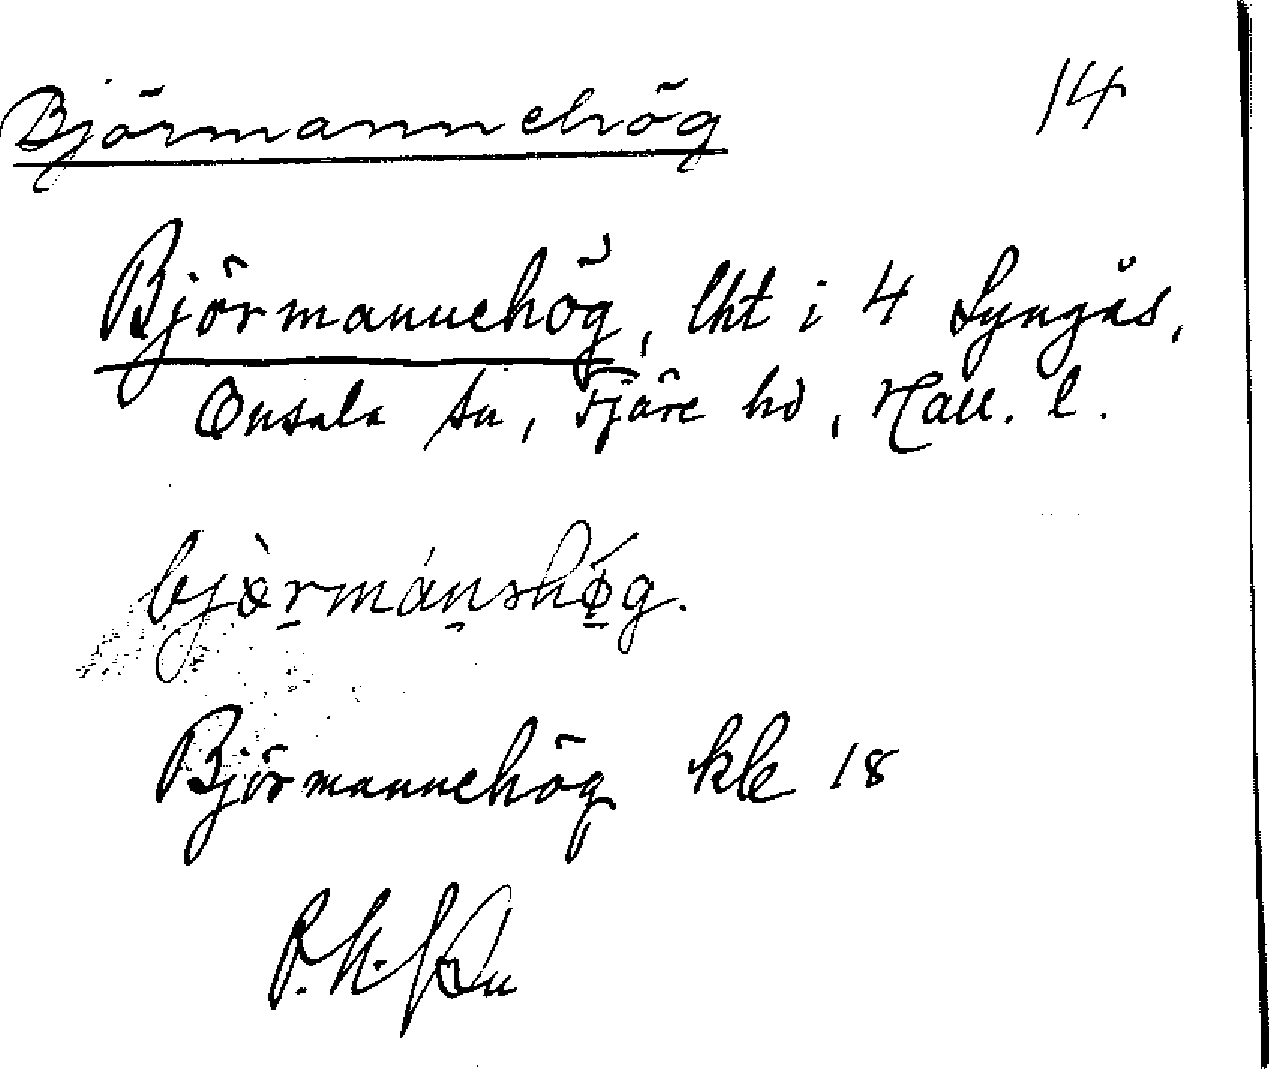 Björmannehög 14
Björmannehög, lht i 4 Lyngås,
Onsala sn, Fjäre hd, Hall. l.
bjὸ̀rmánshǿg.
Björmannehög kle 18
P. N.